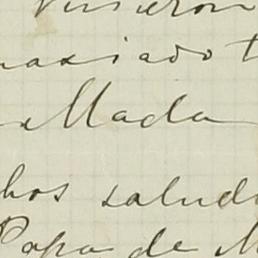 vinieron
maxiado t
llada
hos salud
Papa de M